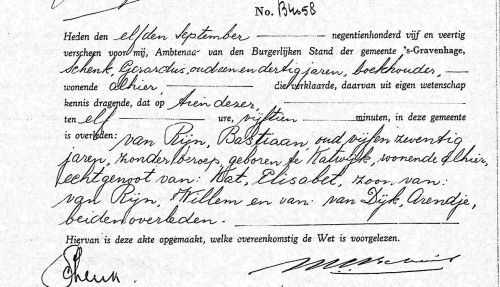 No. B4458
Heden den elfden September negentienhonderd vijf en veertig
verscheen voor mij, Ambtenaar van den Burgerlijken Stand der gemeente 's-Gravenhage,
Schenk, Gerardus, oud een en dertig jaren, boekhouder,
wonende alhier, die verklaarde, daarvan uit eigen wetenschap
kennis dragende, dat op tien dezer,
ten elf ure, vijftien minuten, in deze gemeente
is overleden: van Rijn, Bastiaan, oud vijf en zeventig
jaren, zonder beroep, geboren te Katwijk, wonende alhier,
echtgenoot van: Kat, Elisabet, zoon van:
van Rijn, Willem en van: van Dijk, Arendje,
beiden overleden.
Hiervan is deze akte opgemaakt, welke overeenkomstig de Wet is voorgelezen.
Schenk